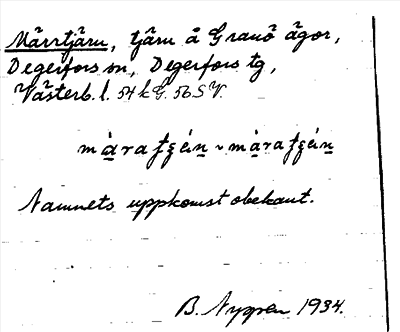 Märrtjärn, tjärn å Granö ägor,
Degerfors sn, Degerfors tg,
Västerb. l. 54 k G. 56 S V.
Namnets uppkomst obekant.
B. Nygren 1934.